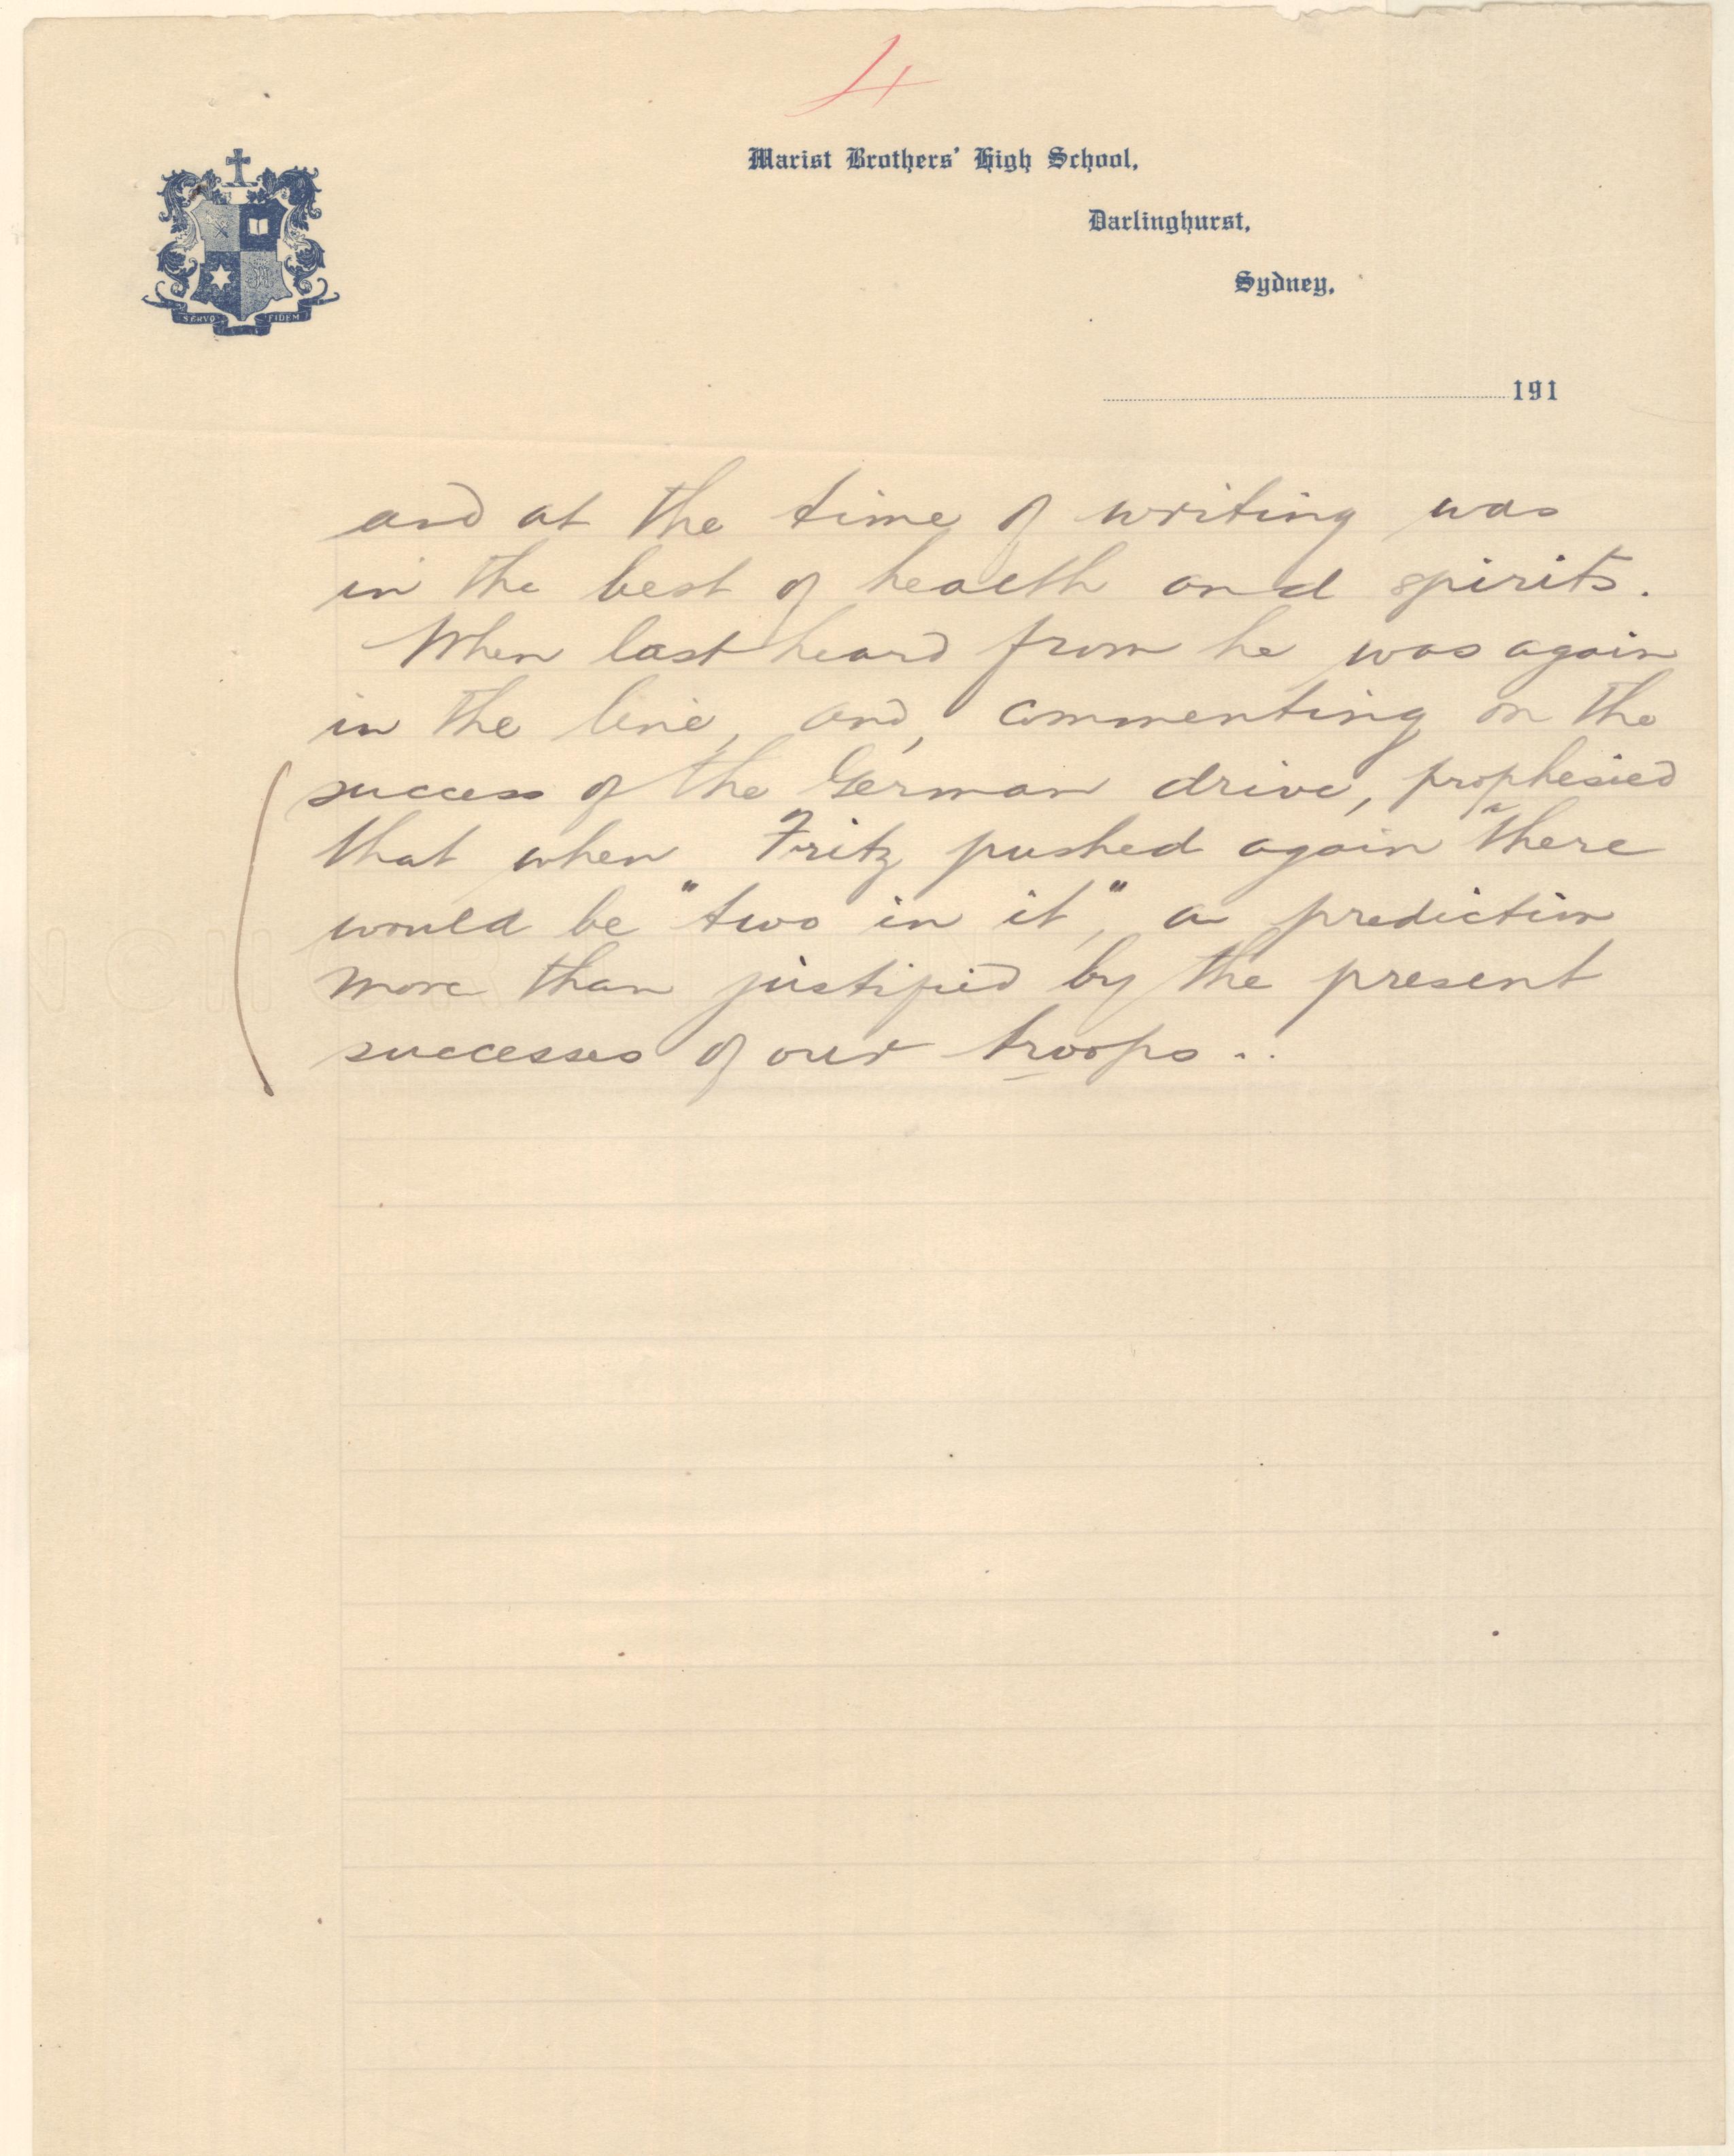 4
Marist Brothers' High School,
Darlinghurst,
Sydney,
SERVO FIDEM
191
and at the time of writing was
in the best of health and spirits.
When last heard from he was again
in the line, and, commenting on the
success of the German drive, prophesied
that when Fritz pushed again "there
would be "two in it," a prediction
more than justified by the present
successes of our troops..